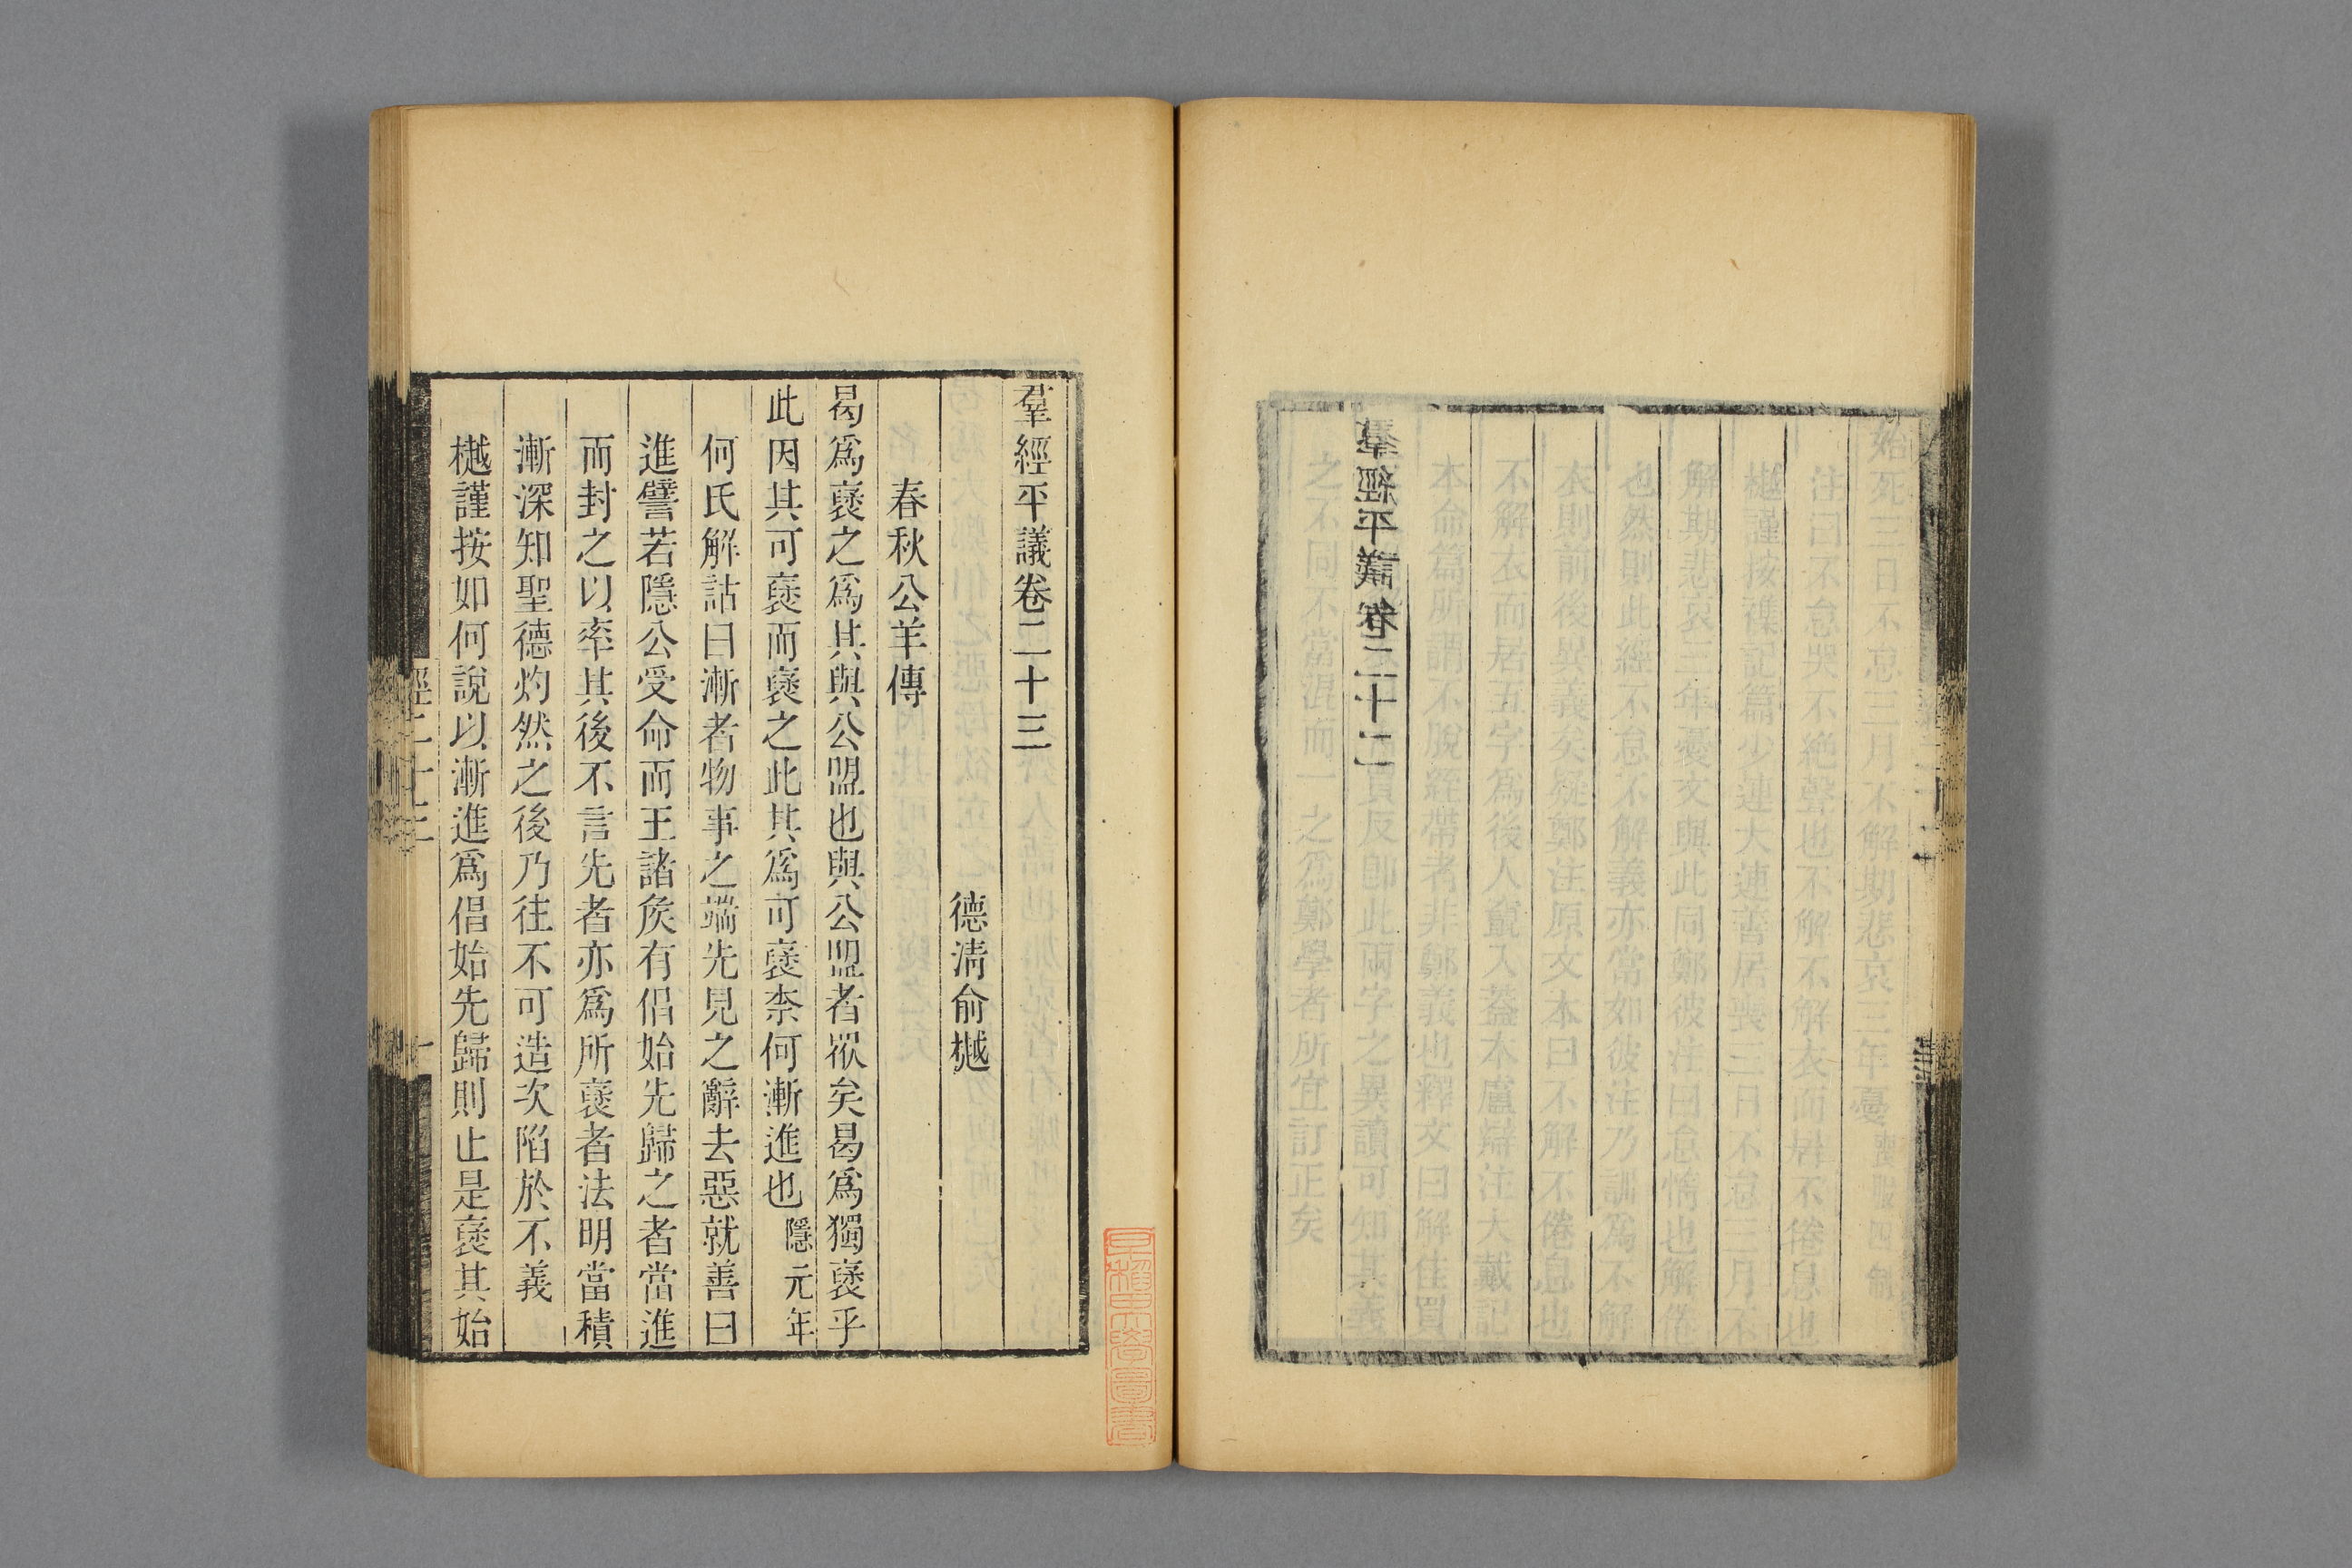 始死三日不怠三月不解期悲哀三年憂喪服四制
注曰不怠哭不絶聲也不解不解衣而居不倦息也
樾謹按襍記篇少連大連善居喪三日不怠三月不
解期悲哀三年憂文與此同鄭彼注曰怠惰也解倦
也然則此經不怠不解義亦當如彼注乃訓爲不解
衣則前後異義矣疑鄭注原文本曰不解不倦息也
不解衣而居五字爲後人竄入葢本盧辯注大戴記
本命篇所謂不脫絰帶者非鄭義也釋文曰解佳買
買反即此兩字之異讀可知其義
之不同不當混而一之爲鄭學者所宜訂正矣
羣經平議卷二十二
羣經平議卷二十三
德清俞樾
春秋公羊傳
曷爲襃之爲其與公盟也與公盟者衆矣曷爲獨襃乎
此因其可襃而襃之此其爲可襃柰何漸進也隱元年
何氏解詁曰漸者物事之端先見之辭去惡就善曰
進譬若隱公受命而王諸矦有倡始先歸之者當進
而封之以率其後不言先者亦爲所襃者法明當積
漸深知聖德灼然之後乃往不可造次陷於不義
樾謹按如何說以漸進爲倡始先歸則止是襃其始
經二十三
一